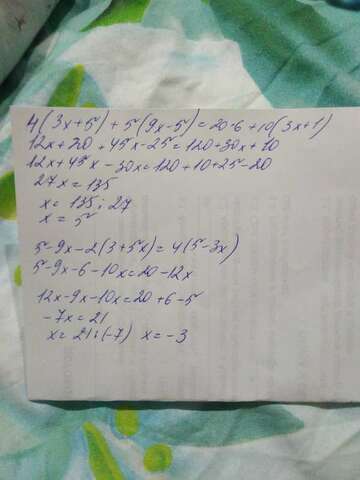 4(3x+5)+5(9x-5)=20·6+10(3x+1)
12x+20+45x-25=120+30x+10
12x+45x-30x=120+10+25-20
27x=135
x=135:27
x=5
5-9x-2(3+5x)=4(5-3x)
5-9x-6-10x=20-12x
12x-9x-10x=20+6-5
-7x=21
x=21:(-7) x=-3